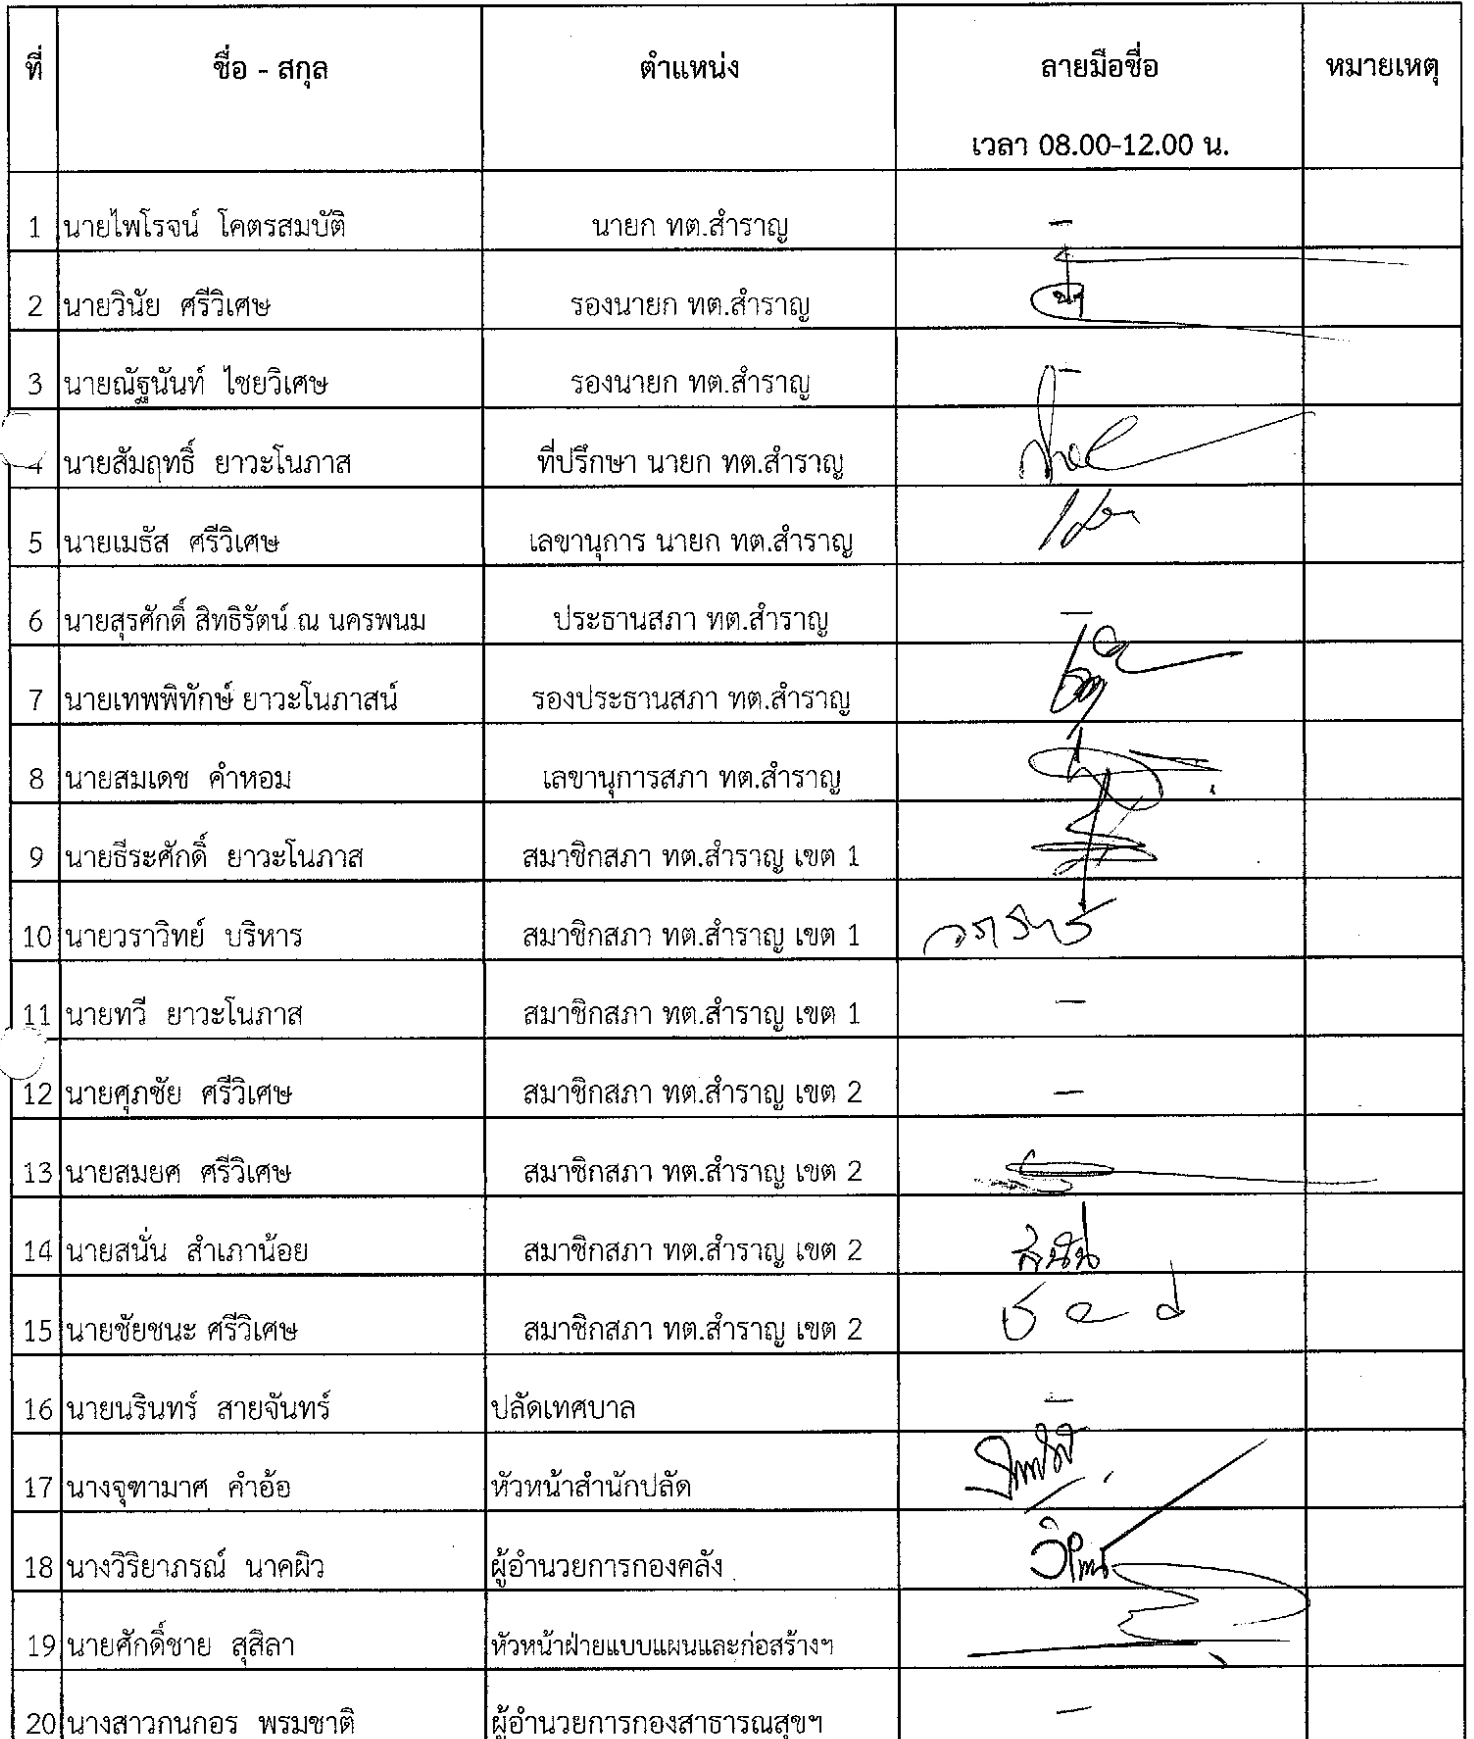 ที่ ชื่อ - สกุล ตำแหน่ง ลายมือชื่อ หมายเหตุ
เวลา 08.00-12.00 น.
1 นายไพโรจน์ โคตรสมบัติ นายก ทต.สำราญ -
2 นายวินัย ศรีวิเศษ รองนายก ทต.สำราญ
3 นายณัฐนันท์ ไชยวิเศษ รองนายก ทต.สำราญ -
4 นายสัมฤทธิ์ ยาวะโนภาส ที่ปรึกษา นายก ทต.สำราญ
5 นายเมธัส ศรีวิเศษ เลขานุการ นายก ทต.สำราญ
6 นายสุรศักดิ์ สิทธิรัตน์ ณ นครพนม ประธานสภา ทต.สำราญ -
7 นายเทพพิทักษ์ ยาวะโนภาสน์ รองประธานสภา ทต.สำราญ
8 นายสมเดช คำหอม เลขานุการสภา ทต.สำราญ
9 นายธีระศักดิ์ ยาวะโนภาส สมาชิกสภา ทต.สำราญ เขต 1
10 นายวราวิทย์ บริหาร สมาชิกสภา ทต.สำราญ เขต 1
11 นายทวี ยาวะโนภาส สมาชิกสภา ทต.สำราญ เขต 1 -
12 นายศุภชัย ศรีวิเศษ สมาชิกสภา ทต.สำราญ เขต 2 -
13 นายสมยศ ศรีวิเศษ สมาชิกสภา ทต.สำราญ เขต 2
14 นายสนั่น สำเภาน้อย สมาชิกสภา ทต.สำราญ เขต 2 สนั่น
15 นายชัยชนะ ศรีวิเศษ สมาชิกสภา ทต.สำราญ เขต 2
16 นายนรินทร์ สายจันทร์ ปลัดเทศบาล -
17 นางจุฑามาศ คำอ้อ หัวหน้าสำนักปลัด
18 นางวิริยาภรณ์ นาคผิว ผู้อำนวยการกองคลัง
19 นายศักดิ์ชาย สุสิลา หัวหน้าฝ่ายแบบแผนและก่อสร้างฯ
20 นางสาวกนกอร พรมชาติ ผู้อำนวยการกองสาธารณสุขฯ -